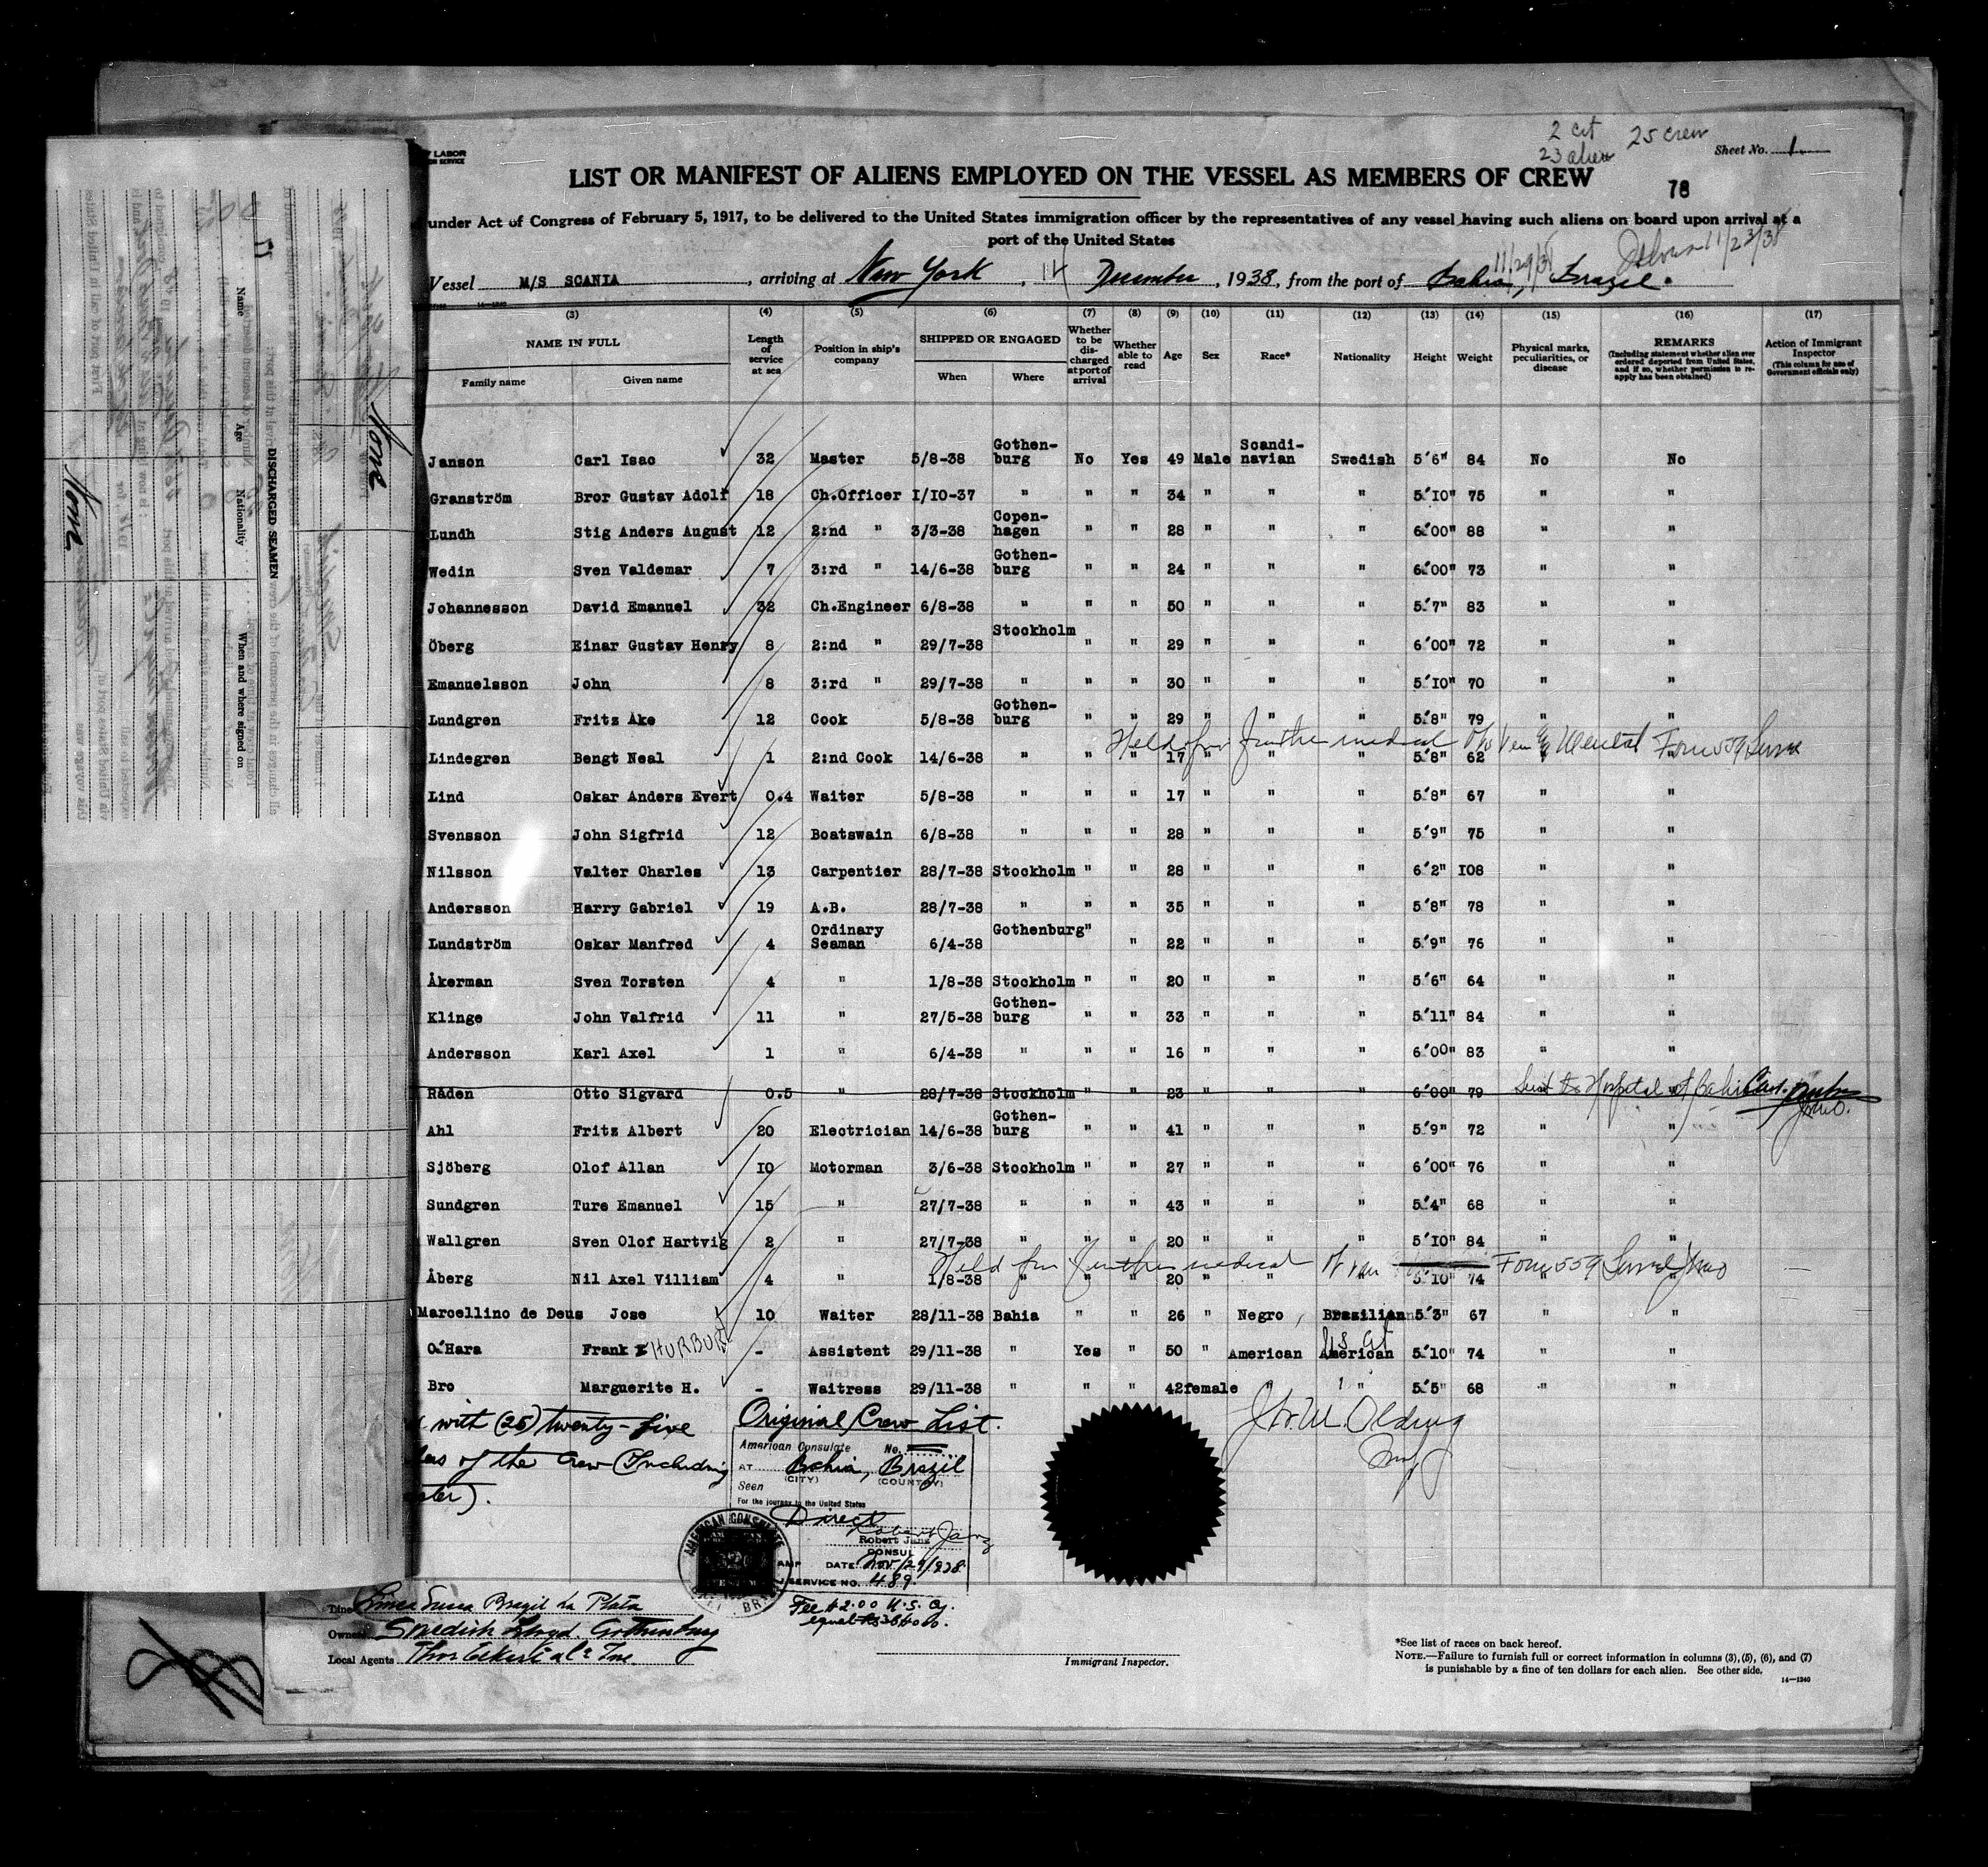 LABOR
SERVICE
2 cit
23 alien
25 crew
Sheet No. 1
LIST OR MANIFEST OF ALIENS EMPLOYED ON THE VESSEL AS MEMBERS OF CREW
78
under Act of Congress of February 5, 1917, to be delivered to the United States immigration officer by the representatives of any vessel having such aliens on board upon arrival at a
port of the United States
11/29/38
11/23/38
Vessel M/S SCANIA, arriving at New York, 14 December, 1938, from the port of Bahia, Brazil.
14-1240
(3) (4) (5) (6) (7) (8) (9) (10) (11) (12) (13) (14) (15) (16) (17)
NAME IN FULL
Family name Given name
Length of service at sea
Position in ship's company
SHIPPED OR ENGAGED
When Where
Whether to be discharged at port of arrival
Whether able to read
Age Sex Race* Nationality Height Weight
Physical marks, peculiarities, or disease
REMARKS
(Including statement whether alien ever ordered deported from United States, and if so, whether permission to reapply has been obtained)
Action of Immigrant Inspector
(This column for use of Government officials only)
Janson Carl Isac 32 Master 5/8-38 Gothen-burg No Yes 49 Male Scandi-navian Swedish 5'6" 84 No No
Granström Bror Gustav Adolf 18 Ch.Officer 1/10-37 " " " 34 " " " 5'10" 75 " "
Lundh Stig Anders August 12 2:nd " 3/3-38 Copen-hagen " " 28 " " " 6'00" 88 " "
Wedin Sven Valdemar 7 3:rd " 14/6-38 Gothen-burg " " 24 " " " 6'00" 73 " "
Johannesson David Emanuel 32 Ch.Engineer 6/8-38 " " " 50 " " " 5'7" 83 " "
Öberg Einar Gustav Henry 8 2:nd " 29/7-38 Stockholm " " 29 " " " 6'00" 72 " "
Emanuelsson John 8 3:rd " 29/7-38 " " " 30 " " " 5'10" 70 " "
Lundgren Fritz Åke 12 Cook 5/8-38 Gothen-burg " " 29 " " " 5'8" 79 " "
Held for further medical Form 559
Lindegren Bengt Neal 1 2:nd Cook 14/6-38 " " " 17 " " " 5'8" 62 " "
Lind Oskar Anders Evert 0.4 Waiter 5/8-38 " " " 17 " " " 5'8" 67 " "
Svensson John Sigfrid 12 Boatswain 6/8-38 " " " 28 " " " 5'9" 75 " "
Nilsson Valter Charles 13 Carpentier 28/7-38 Stockholm " " 28 " " " 6'2" 108 " "
Andersson Harry Gabriel 19 A.B. 28/7-38 " " " 35 " " " 5'8" 78 " "
Lundström Oskar Manfred 4 Ordinary Seaman 6/4-38 Gothenburg " " 22 " " " 5'9" 76 " "
Åkerman Sven Torsten 4 " 1/8-38 Stockholm " " 20 " " " 5'6" 64 " "
Klinge John Valfrid 11 " 27/5-38 Gothen-burg " " 33 " " " 5'11" 84 " "
Andersson Karl Axel 1 " 6/4-38 " " " 16 " " " 6'00" 83 " "
Råden Otto Sigvard 0.5 " 28/7-38 Stockholm " " 23 " " " 6'00" 79 Sent to Hospital at Bahia
Ahl Fritz Albert 20 Electrician 14/6-38 Gothen-burg " " 41 " " " 5'9" 72 " "
Sjöberg Olof Allan 10 Motorman 3/6-38 Stockholm " " 27 " " " 6'00" 76 " "
Sundgren Ture Emanuel 15 " 27/7-38 " " " 43 " " " 5'4" 68 " "
Wallgren Sven Olof Hartvig 2 " 27/7-38 " " " 20 " " " 5'10" 84 " "
Held for further medical Form 559
Åberg Nil Axel Villiam 4 " 1/8-38 " " " 20 " " " 5'10" 74 " "
Marcellino de Deus Jose 10 Waiter 28/11-38 Bahia " " 26 " Negro Brazilian 5'3" 67 " "
O'Hara Frank HURBURT - Assistent 29/11-38 " Yes " 50 " American U.S. cit American 5'10" 74 " "
Bro Marguerite H. - Waitress 29/11-38 " " " 42 female " " 5'5" 68 " "
with (25) twenty-five
of the crew (Including
Original Crew List.
American Consulate No.
AT Bahia, Brazil
(CITY) (COUNTRY)
Seen
For the journey to the United States
Direct
Robert Janz
Robert Janz
CONSUL
DATE: Nov/29/938
SERVICE NO. 489.
AMERICAN CONSULATE
Fee $2.00 U.S. Cy.
Line
Brazil La Plata
Owners Swedish Lloyd Gothenburg
Local Agents
Immigrant Inspector.
*See list of races on back hereof.
NOTE.—Failure to furnish full or correct information in columns (3), (5), (6), and (7)
is punishable by a fine of ten dollars for each alien. See other side.
14—1240
DISCHARGED SEAMEN
Name Age Nationality When and where signed on
None
None